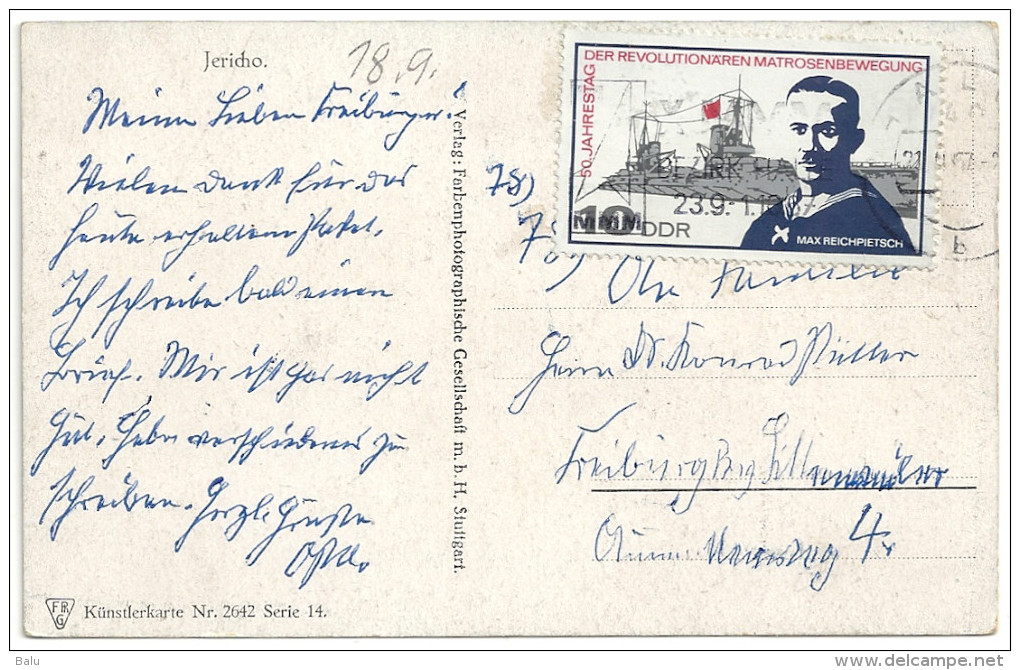 Jericho.
18.9.
Meine lieben Freiburger!
Vielen Dank für das
heute erhaltene Paket.
Ich schreibe bald einen
Brief. Mir ist gar nicht
gut. Habe verschiedenes zu
schreiben. Herzl. Grüße
Verlag: Farbenphotographische Gesellschaft m. b. H. Stuttgart.
50. JAHRESTAG DER REVOLUTIONÄREN MATROSENBEWEGUNG
BEZIRK HALLE
23.9.-1.10.67
MMM
10 DDR
MAX REICHPIETSCH
b
78)
78)
An Familie
Herrn Dr. Konrad Müller
Freiburg
4
FRG
Künstlerkarte Nr. 2642 Serie 14.
Balu
delcampe.net